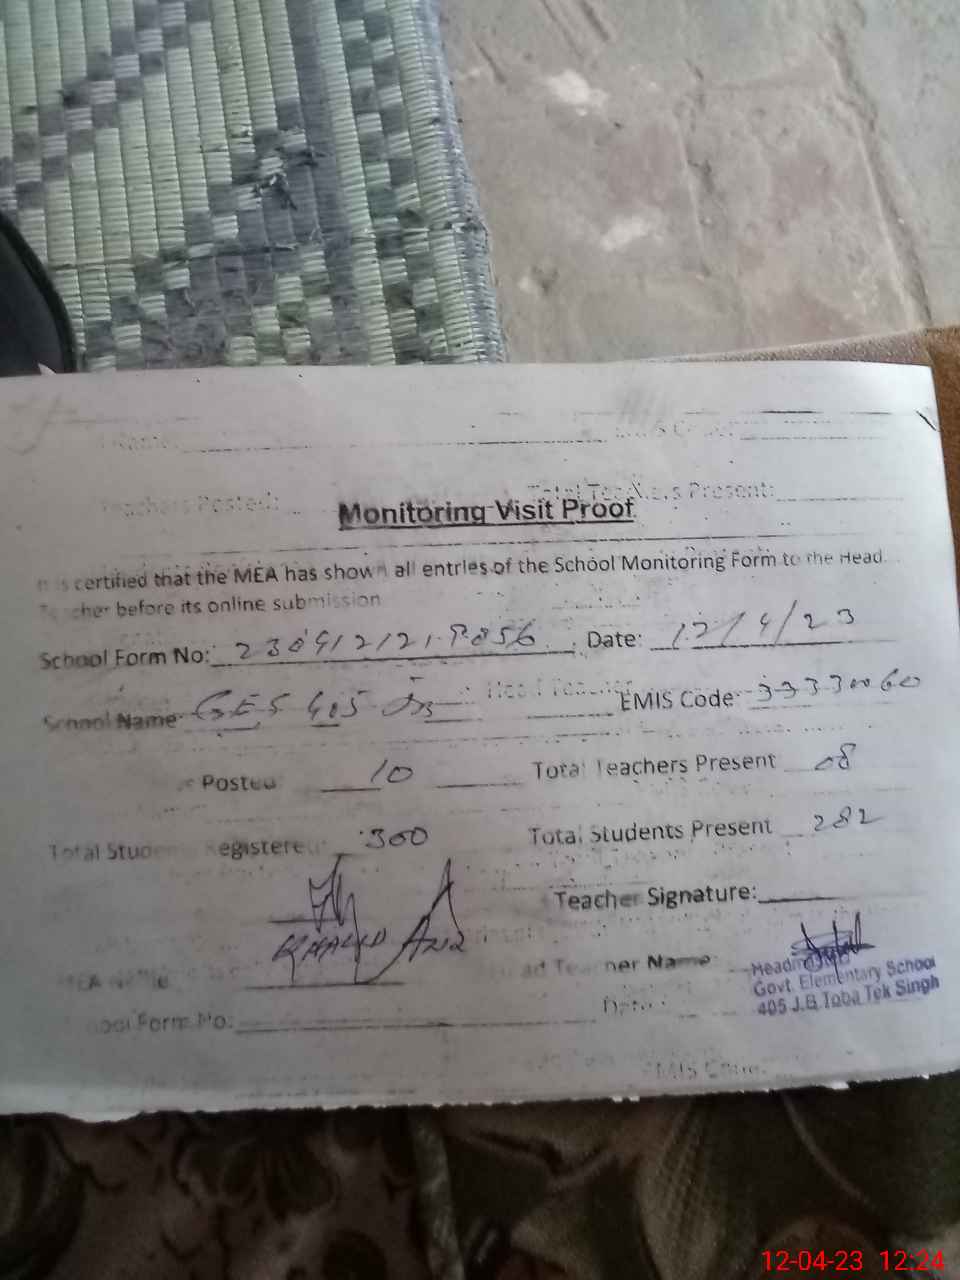 Teachers Posted: Total Teachers Present:
Monitoring Visit Proof
certified that the MEA has shown all entries of the School Monitoring Form to the Head
Teacher before its online submission
School Form No: Date: 12/4/23
School Name: GES 405 JB EMIS Code: 33300060
Posted 10 Total Teachers Present 08
Total Students Registered: 300 Total Students Present 282
Teacher Signature:
KHALID AZIZ
MEA Name Head Teacher Name:
Headmaster
Govt. Elementary School
405 J.B Toba Tek Singh
School Form No: Date:
EMIS Code:
12-04-23 12:24